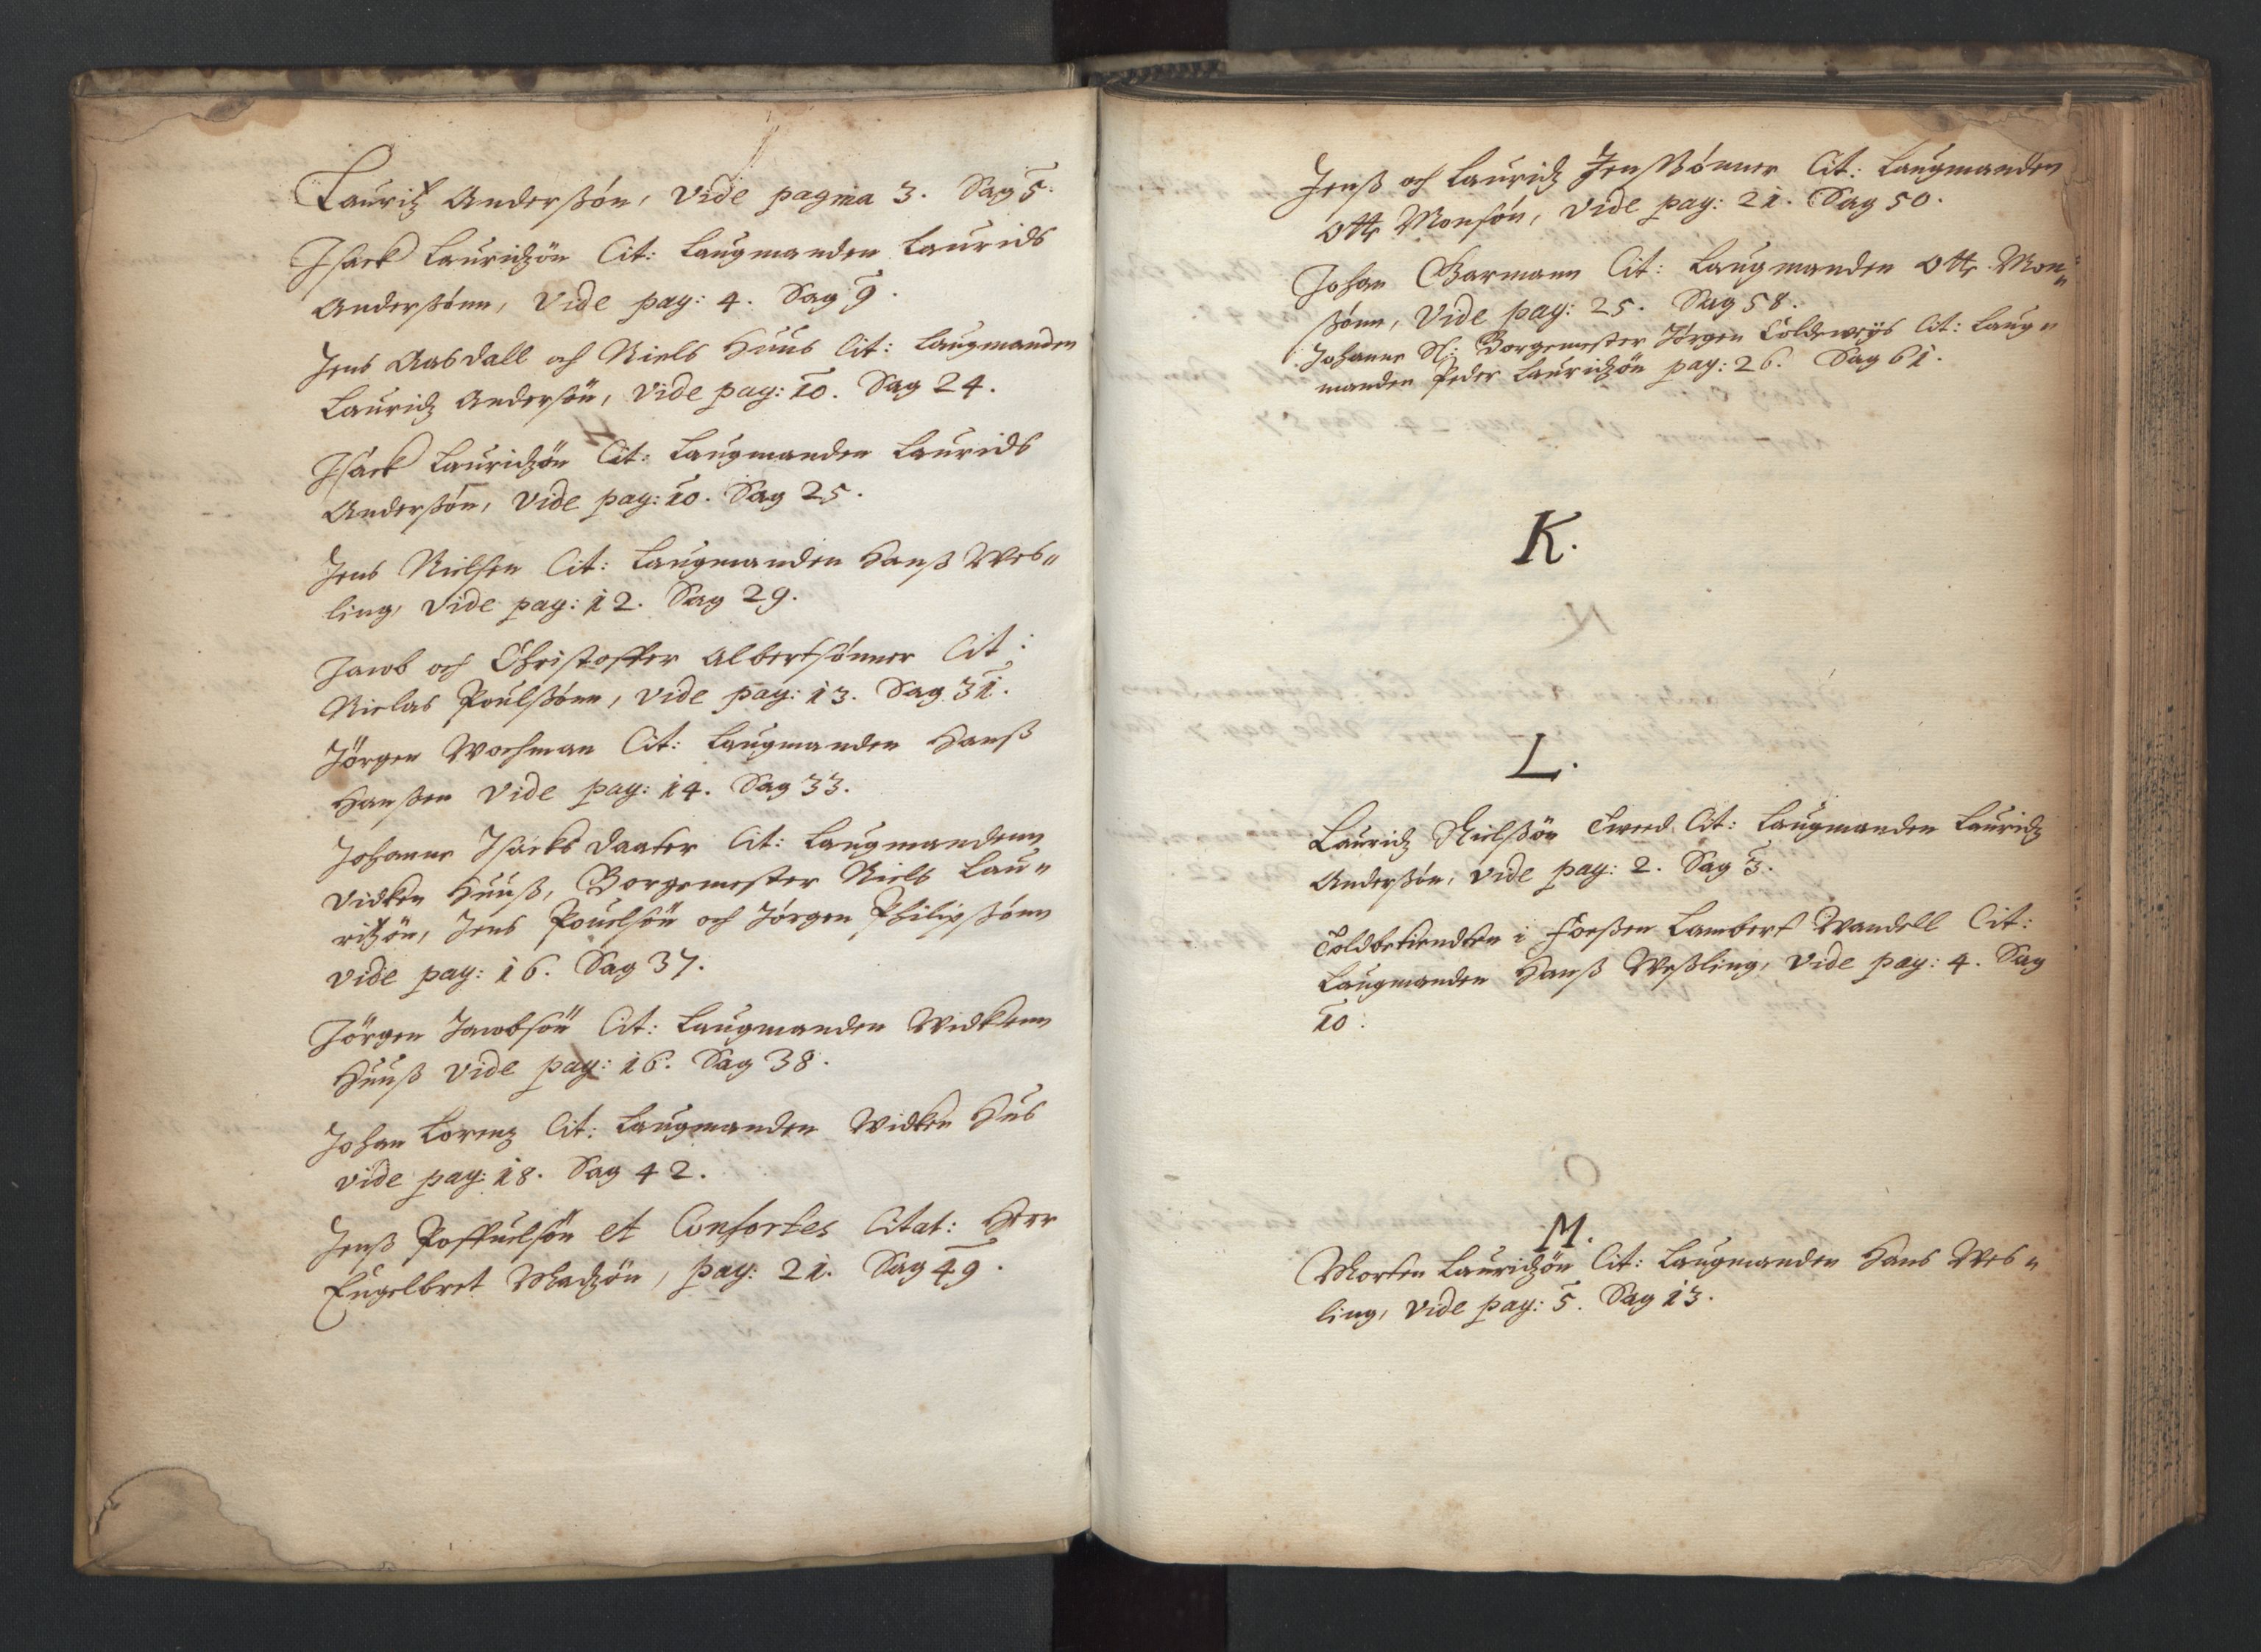 Lauritz Anderßön, Vide pagina 3. Sag 5.
Isack Lauridzön Cit: Laugmanden Laurids
Anderßönn, Vide pag: 4. Sag 9.
Jens Aasdall och Niels Huus Cit: Laugmanden
Lauridz Andersön, Vide pag: 10. Sag 24.
Isack Lauridzön Cit: Laugmanden Laurids
Anderßön, Vide pag: 10. Sag 25.
Jens Nielsen Cit: Laugmanden Hanß Wes„
ling, Vide pag: 12. Sag 29.
Jacob och Christoffer Albertsönner Cit:
Nielas Poulßönn, Vide pag: 13. Sag 31.
Jörgen Wochman Cit: Laugmanden Hanß
Hanßen Vide pag: 14. Sag 33.
Johanne Isacks daater Cit: Laugmandenn
Vidken Huuß, Borgemester Niels Lau„
ritzön, Jens Pouelsön och Jörgen Philipßönn
Vide pag: 16. Sag 37.
Jörgen Jacobsön Cit: Laugmanden Widkenn
Huuß Vide pag: 16. Sag 38.
Johan Lorenz Cit: Laugmanden Widken Hus
Vide pag: 18. Sag 42.
Jenß Poffuelsön et Consortes Citat: Herr
Engelbret Madzön, pag: 21. Sag 49.
Jenß och Lauridz Jenßönner Cit: Laugmanden
Otte Monsön, Vide pag: 21. Sag 50.
Johan Garmann Cit: Laugmanden Otte Mon„
ßönn, Vide pag: 25. Sag 58.
Johanne Sl: Borgemester Jörgen Coldeweys Cit: Laug„
manden Peder Lauridzön pag: 26. Sag 61.
K.
L.
Lauridz Nielßön Tweed Cit: Laugmanden Lauridz
Anderßön, Vide pag: 2. Sag 3.
Toldbetiendten i Foeßen Lambert Wandell Cit:
Laugmanden Hanß Weßling, Vide pag: 4. Sag
10.
M.
Morten Lauridzön Cit: Laugmanden Hans Wes„
ling, Vide pag: 5. Sag 13.